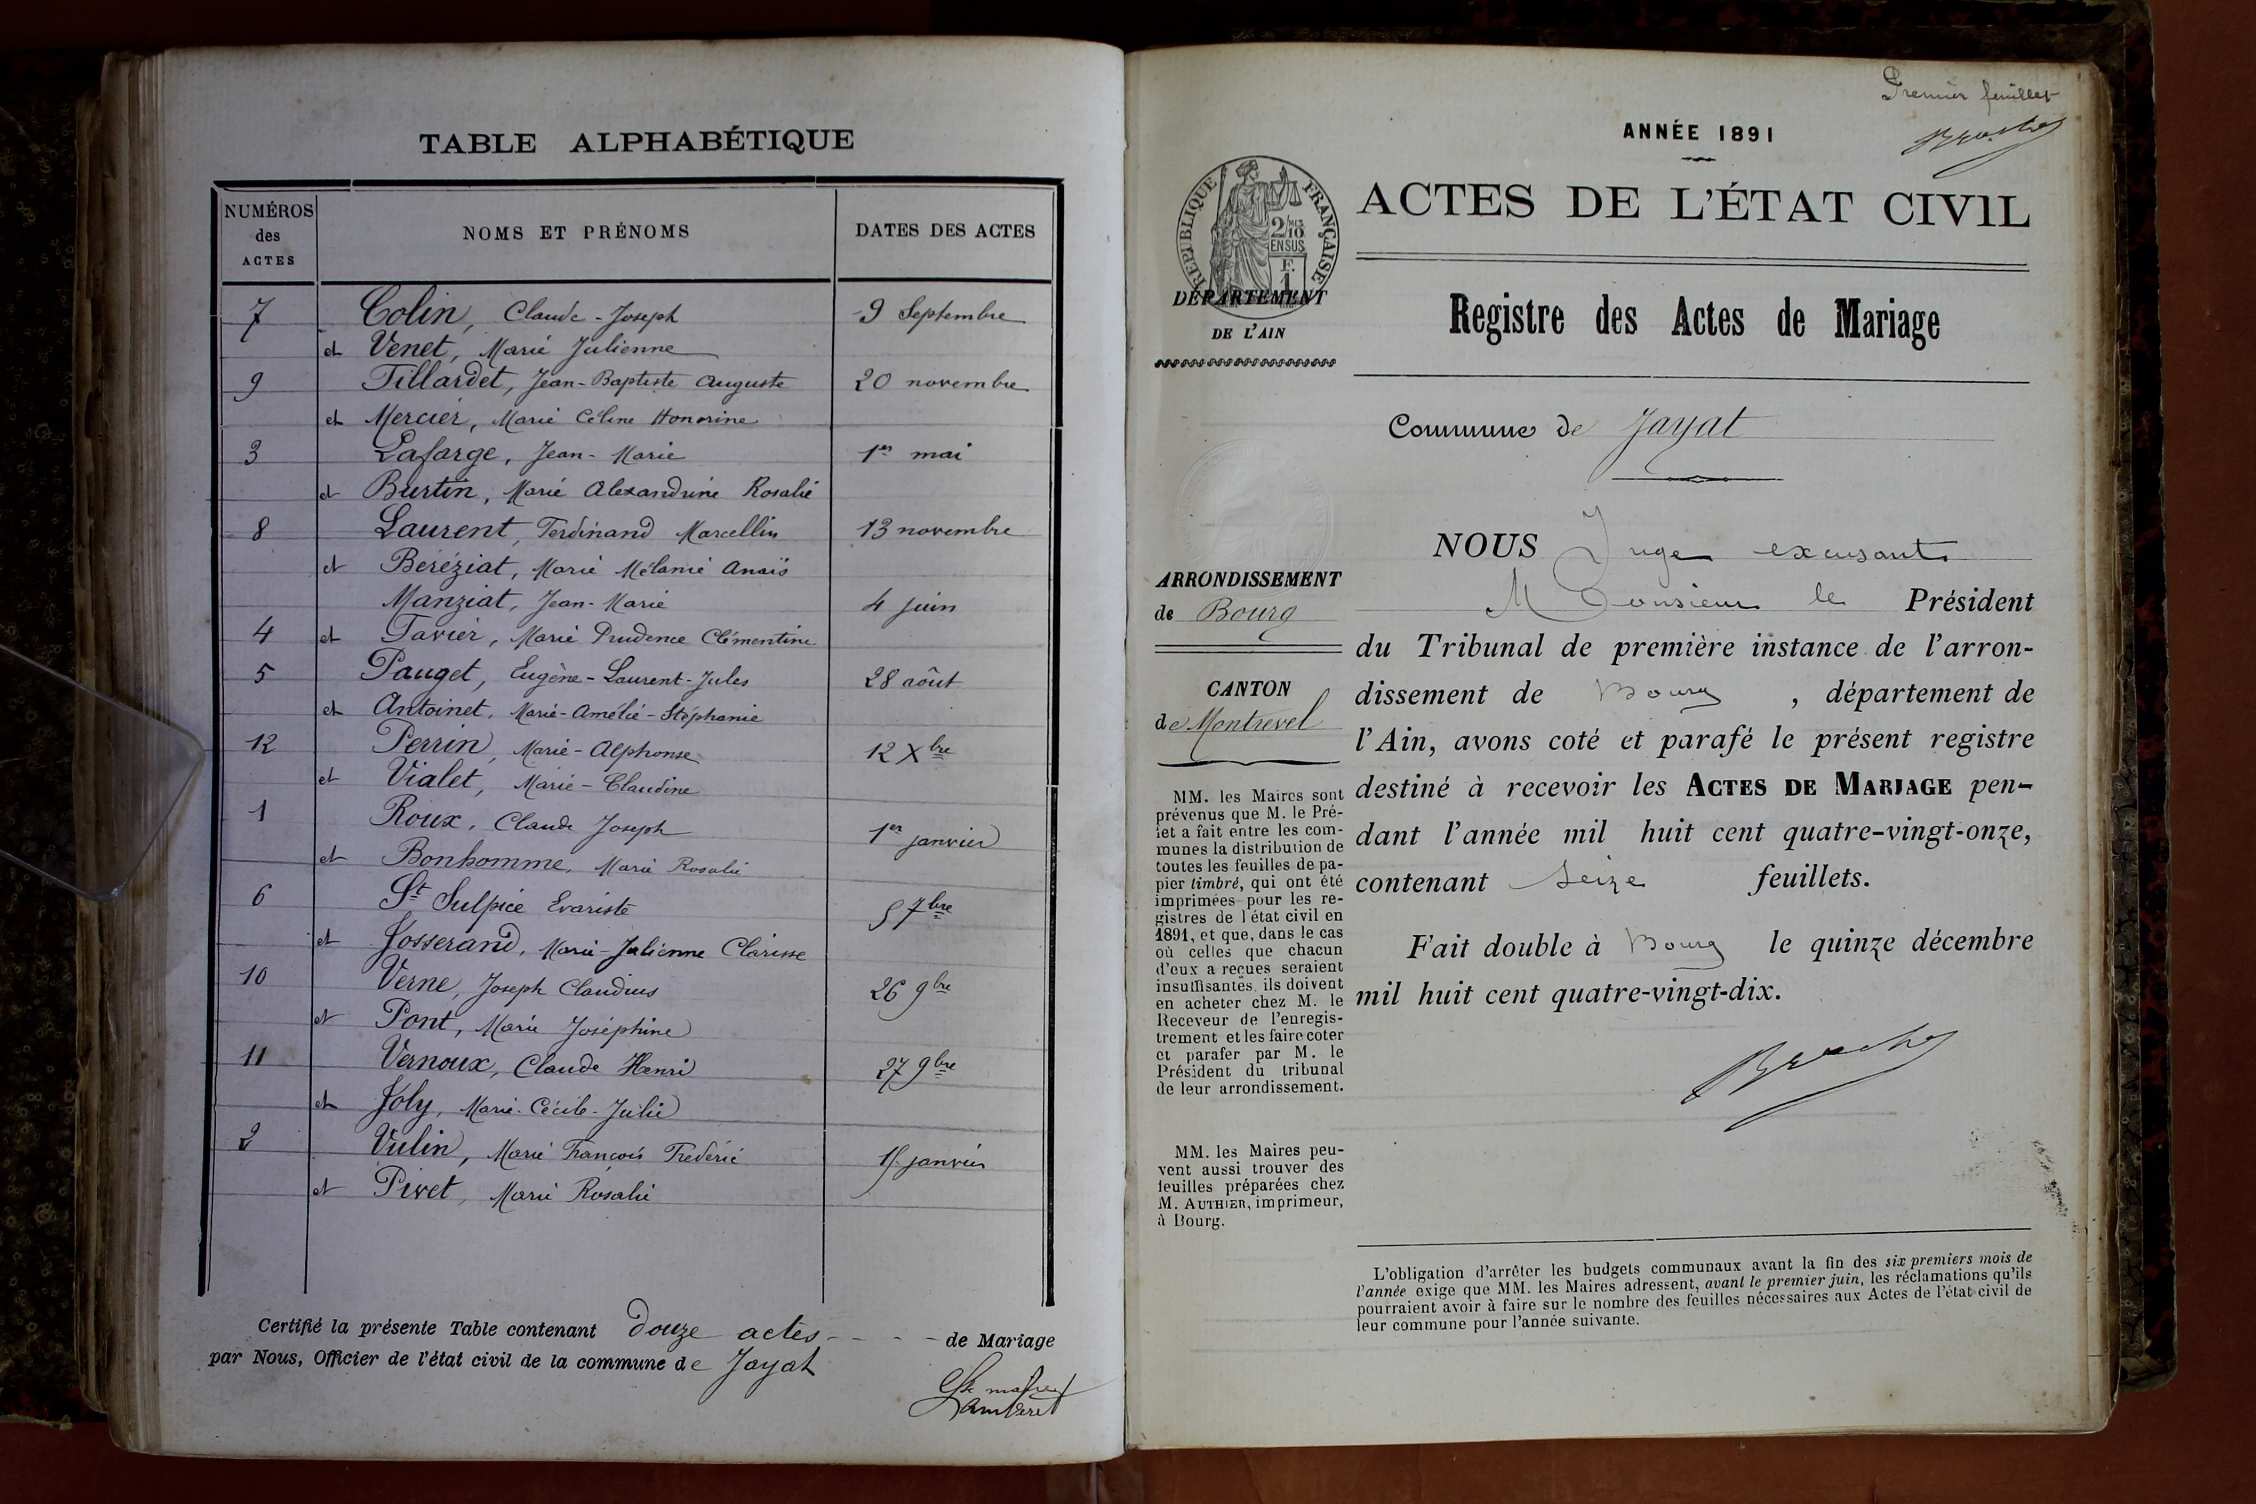 TABLE ALPHABÉTIQUE
NUMÉROS des ACTES
NOMS ET PRÉNOMS
DATES DES ACTES
7 Colin, Claude-Joseph 9 Septembre
et Venet, Marie Julienne
9 Tillardet, Jean-Baptiste Auguste 20 novembre
et Mercier, Marie Céline Honorine
3 Lafarge, Jean-Marie 1er mai
et Burtin, Marie Alexandrine Rosalie
8 Laurent, Ferdinand Marcellin 13 novembre
et Béréziat, Marie Mélanie Anaïs
Manziat, Jean-Marie 4 juin
4 et Tavier, Marie Prudence Clémentine
5 Pauget, Eugène-Laurent-Jules 28 août
et Antoinet, Marie-Amélie-Stéphanie
12 Perrin, Marie-Alphonse 12 Xbre
et Vialet, Marie-Claudine
1 Roux, Claude Joseph 1er janvier
et Bonhomme, Marie Rosalie
6 St Sulpice Evariste 5 7bre
et Josserand, Marie-Julienne Clarisse
10 Verne, Joseph Claudius 26 9bre
et Pont, Marie Joséphine
11 Vernoux, Claude Henri 27 9bre
et Joly, Marie-Cécile-Julie
2 Vulin, Marie François Frédéric 15 janvier
et Pivet, Marie Rosalie
Certifié la présente Table contenant douze actes - - - - de Mariage
par Nous, Officier de l'état civil de la commune de Jayat
Le maire
Premier feuillet
ANNÉE 1891
RÉPUBLIQUE FRANÇAISE
2/10 EN SUS
F. 1
DÉPARTEMENT
DE L'AIN
ACTES DE L'ÉTAT CIVIL
Registre des Actes de Mariage
Commune de Jayat
ARRONDISSEMENT
de Bourg
CANTON
de Montrevel
MM. les Maires sont
prévenus que M. le Pré-
fet a fait entre les com-
munes la distribution de
toutes les feuilles de pa-
pier timbré, qui ont été
imprimées pour les re-
gistres de l'état civil en
1891, et que, dans le cas
où celles que chacun
d'eux a reçues seraient
insuffisantes, ils doivent
en acheter chez M. le
Receveur de l'enregis-
trement et les faire coter
et parafer par M. le
Président du tribunal
de leur arrondissement.
MM. les Maires peu-
vent aussi trouver des
feuilles préparées chez
M. AUTHIER, imprimeur,
à Bourg.
NOUS Juge excusant
Monsieur le Président
du Tribunal de première instance de l'arron-
dissement de Bourg, département de
l'Ain, avons coté et parafé le présent registre
destiné à recevoir les ACTES DE MARIAGE pen-
dant l'année mil huit cent quatre-vingt-onze,
contenant seize feuillets.
Fait double à Bourg le quinze décembre
mil huit cent quatre-vingt-dix.
L'obligation d'arrêter les budgets communaux avant la fin des six premiers mois de
l'année exige que MM. les Maires adressent, avant le premier juin, les réclamations qu'ils
pourraient avoir à faire sur le nombre des feuilles nécessaires aux Actes de l'état civil de
leur commune pour l'année suivante.